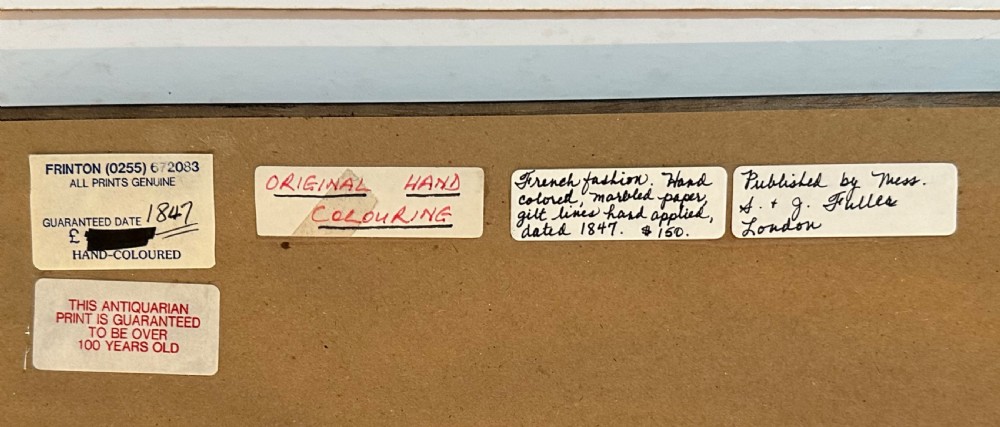 FRINTON (0255) 672083
ALL PRINTS GENUINE
GUARANTEED DATE 1847
£
HAND-COLOURED
THIS ANTIQUARIAN
PRINT IS GUARANTEED
TO BE OVER
100 YEARS OLD
ORIGINAL HAND
COLOURING
French fashion. Hand
colored, marbled paper,
gilt lines hand applied,
dated 1847. $150.
Published by Mess.
S. & J. Fuller
London